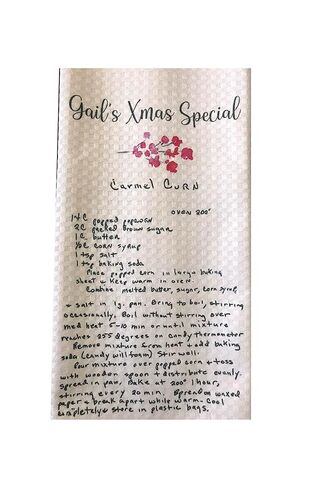 Gail's Xmas Special
Carmel Corn
OVEN 200°
14 C popped popcorn
2C packed brown sugar
1 C butter
½C corn syrup
1 tsp salt
1 tsp baking soda
Place popped corn in large baking
sheet & keep warm in oven.
Combine melted butter, sugar, corn syrup
& salt in lg. pan. Bring to boil, stirring
occasionally. Boil without stirring over
med heat 5-10 min or until mixture
reaches 255 degrees on candy thermometer
Remove mixture from heat & add baking
soda (candy will foam) stir well.
Pour mixture over popped corn & toss
with wooden spoon & distribute evenly.
spread in pan. Bake at 200° 1 hour,
stirring every 20 min. Spread on waxed
paper & break apart while warm. Cool
completely & store in plastic bags.